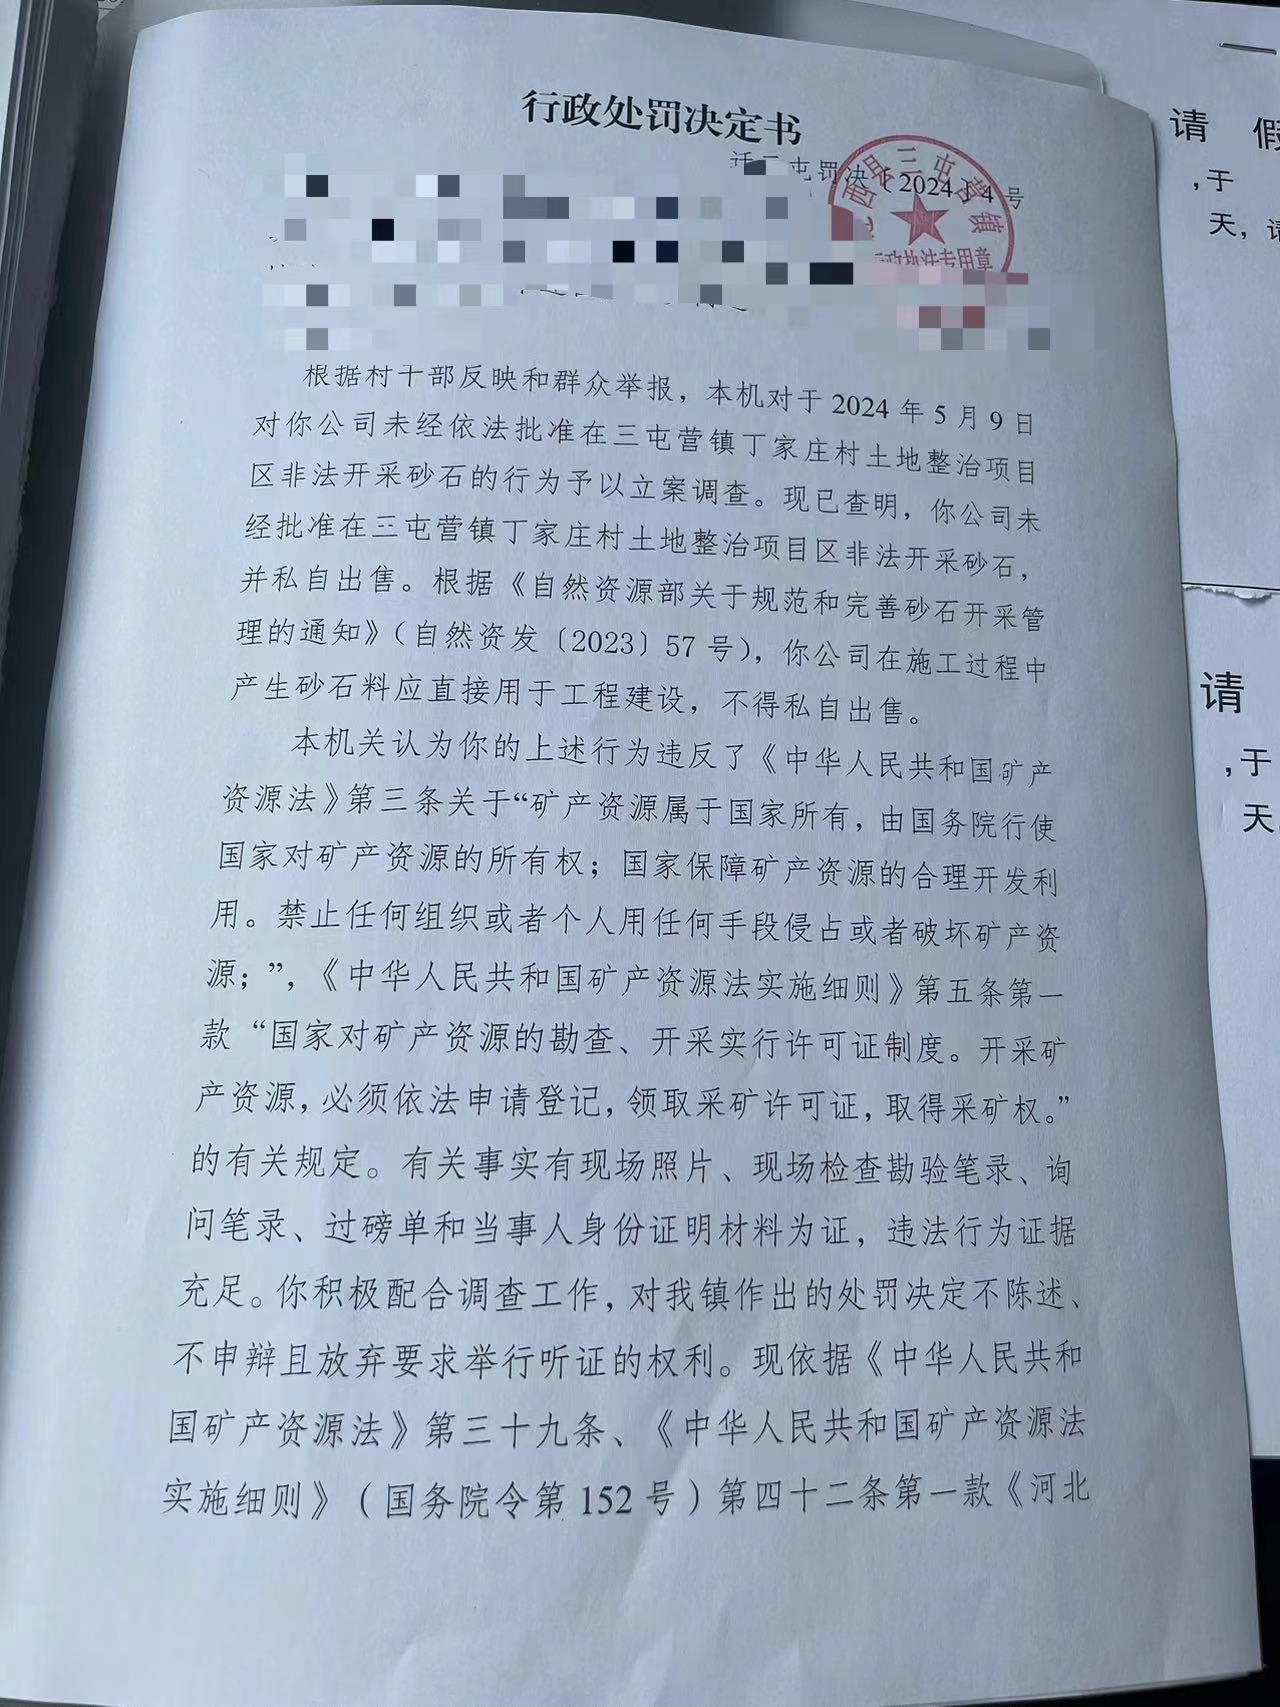 行政处罚决定书
屯罚决〔2024〕4号
西县三屯营镇
行政执法专用章
根据村干部反映和群众举报，本机对于2024年5月9日
对你公司未经依法批准在三屯营镇丁家庄村土地整治项目
区非法开采砂石的行为予以立案调查。现已查明，你公司未
经批准在三屯营镇丁家庄村土地整治项目区非法开采砂石，
并私自出售。根据《自然资源部关于规范和完善砂石开采管
理的通知》（自然资发〔2023〕57号），你公司在施工过程中
产生砂石料应直接用于工程建设，不得私自出售。
本机关认为你的上述行为违反了《中华人民共和国矿产
资源法》第三条关于“矿产资源属于国家所有，由国务院行使
国家对矿产资源的所有权；国家保障矿产资源的合理开发利
用。禁止任何组织或者个人用任何手段侵占或者破坏矿产资
源；”，《中华人民共和国矿产资源法实施细则》第五条第一
款“国家对矿产资源的勘查、开采实行许可证制度。开采矿
产资源，必须依法申请登记，领取采矿许可证，取得采矿权。”
的有关规定。有关事实有现场照片、现场检查勘验笔录、询
问笔录、过磅单和当事人身份证明材料为证，违法行为证据
充足。你积极配合调查工作，对我镇作出的处罚决定不陈述、
不申辩且放弃要求举行听证的权利。现依据《中华人民共和
国矿产资源法》第三十九条、《中华人民共和国矿产资源法
实施细则》（国务院令第152号）第四十二条第一款《河北
请 假
，于
天，请
请
，于
天